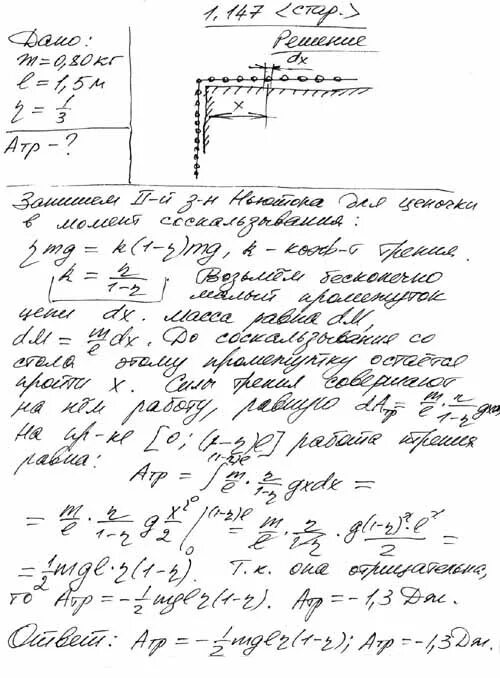 1.147 <стар.>
Дано:
m=0,80кг
l=1,5м
η=1/3
Aтр-?
Решение
dx
x
Запишем II-й з-н Ньютона для цепочки
в момент соскальзывания:
ηmg = k(1-η)mg, k - коэф-т трения.
k = η/(1-η) Возьмём бесконечно
малый промежуток
цепи dx. масса равна dM,
dM = m/l dx. До соскальзывание со
стола этому промежутку остаётся
пройти x. Силы трения совершают
на нём работу, равную dAтр = m/l · η/(1-η) gxdx
На пр-ке [0; (1-η)l] работа трения
равна: Aтр = ∫₀^((1-η)l) m/l · η/(1-η) gxdx =
= m/l · η/(1-η) g x²/2 |₀^((1-η)l) = m/l · η/(1-η) · g(1-η)²l²/2 =
= 1/2 mgl·η(1-η). Т.к. она отрицательна,
то Aтр = -1/2 mglη(1-η). Aтр = -1,3 Дж.
Ответ: Aтр = -1/2 mglη(1-η); Aтр = -1,3 Дж.